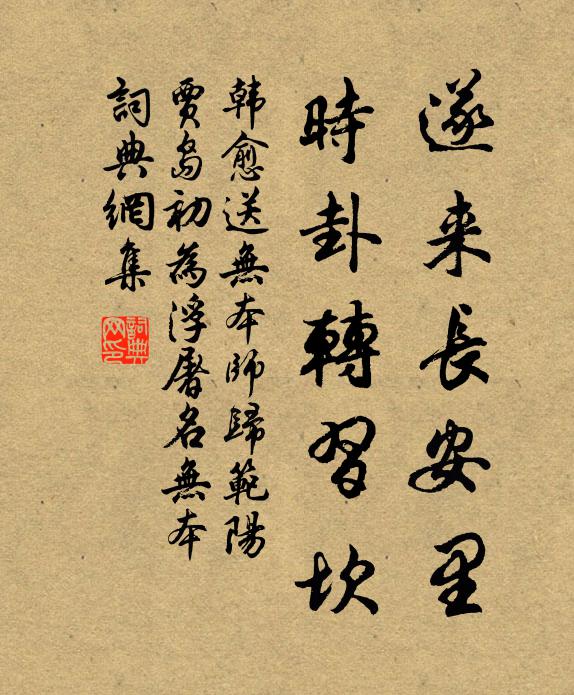 遂来長安里
時卦轉習坎
韩愈送無本師歸範陽
賈島初為浮屠名無本
詞典網集
詞典网印